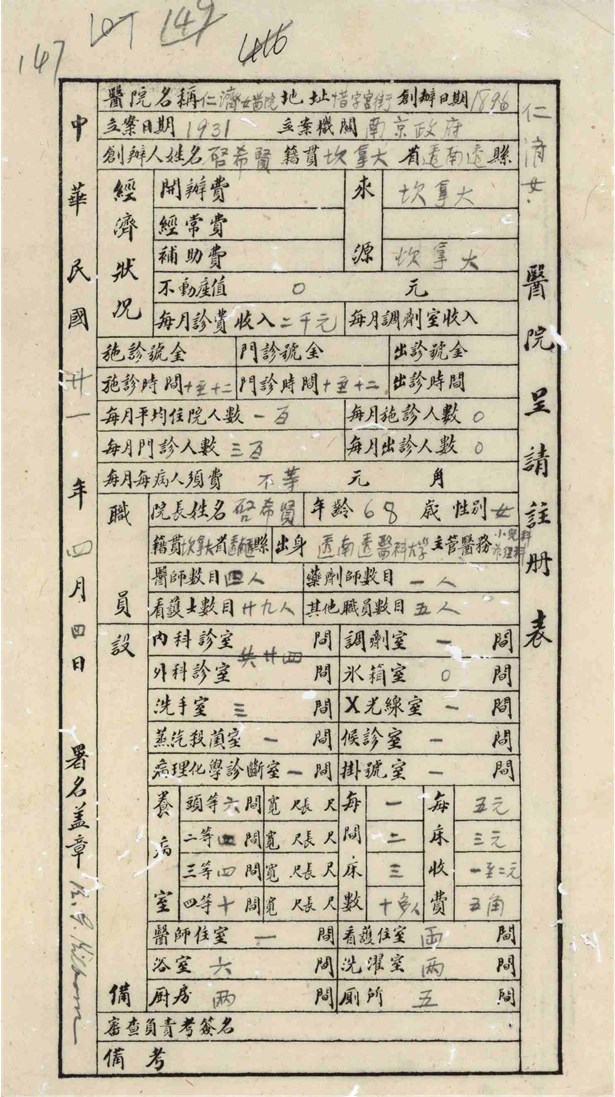 147 149
仁濟女醫院呈請註冊表
醫院名稱仁濟女醫院 地址惜字宮街 創辦日期1896
立案日期1931 立案機關南京政府
創辦人姓名啓希賢 籍貫坎拿大省 縣
經濟狀況
開辦費 來源 坎拿大
經常費
補助費 坎拿大
不動產值 0 元
每月診費收入二千元 每月調劑室收入
施診號金 門診號金 出診號金
施診時間十至十二 門診時間十至十二 出診時間
每月平均住院人數 一百 每月施診人數 0
每月門診人數 三百 每月出診人數 0
每月每病人須費 不等 元 角
職員
院長姓名啓希賢 年齡68歲 性別女
籍貫坎拿大省 縣 出身 醫科大學 主管醫務小兒科
醫師數目四人 藥劑師數目 一人
看護士數目廿九人 其他職員數目五人
設備
內科診室 共廿四 間 調劑室 一 間
外科診室 間 氷箱室 0 間
洗手室 三 間 X光線室 一 間
蒸汽殺菌室 一 間 候診室 一 間
病理化學診斷室一間 掛號室 一 間
養病室
頭等六間寬 尺長 尺 每間床數 一 每床收費 五元
二等四間寬 尺長 尺 二 三元
三等四間寬 尺長 尺 三 一至二元
四等十間寬 尺長 尺 十多人 五角
醫師住室 一 間 看護住室 両 間
浴室 六 間 洗濯室 両 間
廚房 両 間 厠所 五 間
審查負責考簽名
備考
中華民國廿一年四月四日 署名盖章